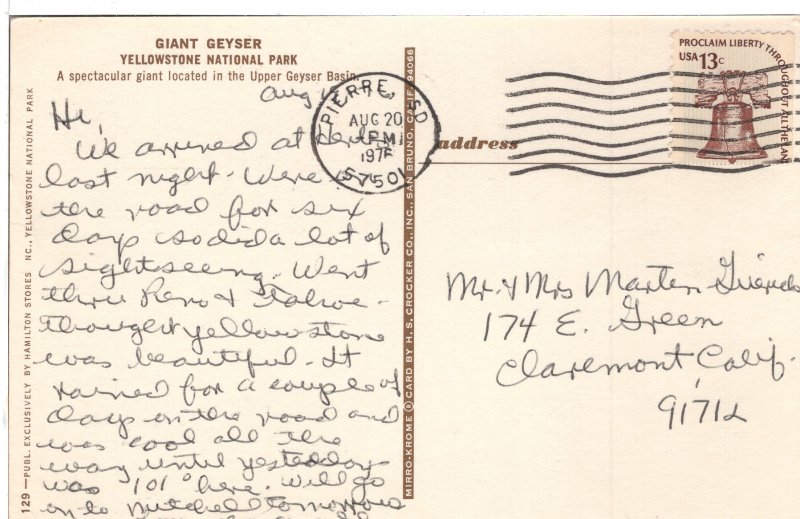 GIANT GEYSER
YELLOWSTONE NATIONAL PARK
A spectacular giant located in the Upper Geyser Basin.
Aug
Hi,
We arrived at
last night. Were
the road for six
days so did a lot of
sightseeing. Went
thru Reno & Tahoe -
thought yellowstone
was beautiful. It
rained for a couple of
days on the road and
was cool all the
way until yesterday
was 101° here. Will go
on to Mitchell tomorrow
129—PUBL. EXCLUSIVELY BY HAMILTON STORES NC., YELLOWSTONE NATIONAL PARK
MIRRO-KROME ® CARD BY H. S. CROCKER CO., INC., SAN BRUNO, CALIF. 94066
PIERRE, SD
AUG 20
PM
197
57501
address
PROCLAIM LIBERTY THROUGHOUT ALL THE LAND
USA 13c
Mr. & Mrs Marten
174 E. Green
Claremont, Calif.
91712